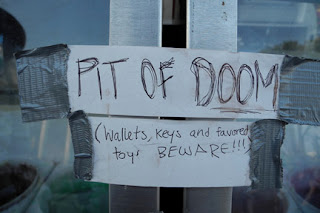 PIT OF DOOM
(Wallets, keys and favored
toys BEWARE!!!)